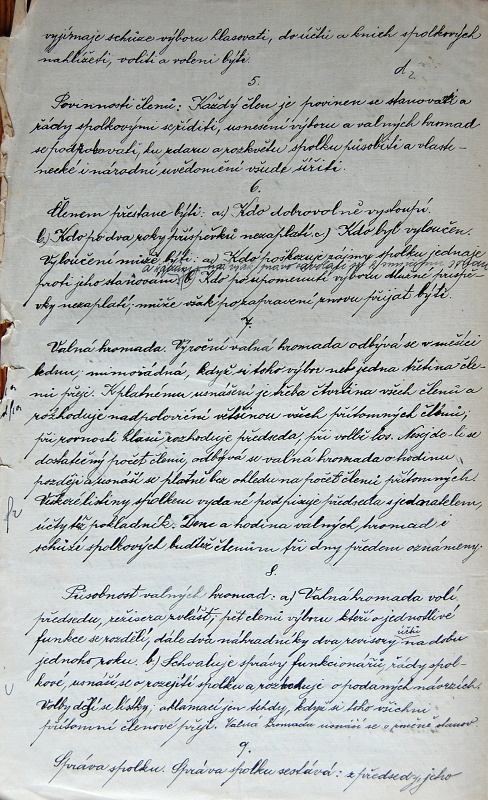 vyjímaje schůze výboru hlasovati, do účtů a knih spolkových
nahlížeti, voliti a voleni býti.
5.
Povinnosti členů: Každý člen je povinen se stanovami a
řády spolkovými se říditi, usnesení výboru a valných hromad
se podrobovati, ku zdaru a rozkvětu spolku působiti a vlaste-
necké i národní uvědomění všude šířiti.
6.
Členem přestane býti: a) Kdo dobrovolně vystoupí.
b) Kdo po dva roky příspěvků nezaplatí. c) Kdo byl vyloučen.
Vyloučení může býti: a) Kdo poškozuje zájmy spolku, jednaje
proti jeho stanovám. b) Kdo po upomenutí výboru dlužné příspě-
vky nezaplatí; může však po zapravení znovu přijat býti.
7.
Valná hromada. Výroční valná hromada odbývá se v měsíci
lednu; mimořádná, když si toho výbor neb jedna třetina čle-
nů přeje. K platnému usnášení je třeba čtvrtina všech členů a
rozhoduje nadpoloviční většinou všech přítomných členů;
při rovnosti hlasů rozhoduje předseda, při volbě los. Nesejde-li se
dostatečný počet členů, odbývá se valná hromada o hodinu
později a usnáší se platně bez ohledu na počet členů přítomných.
Veškeré listiny spolkem vydané podpisuje předseda s jednatelem,
účty též pokladník. Dnec a hodina valných hromad i
schůzí spolkových budtež členům tři dny předem oznámeny.
8.
Působnost valných hromad: a) Valná hromada volí
předsedu, režiséra zvlášť; pět členů výboru kteří o jednotlivé
funkce se rozdělí, dále dva náhradníky dva revisory účtů na dobu
jednoho roku. b) Schvaluje správy funkcionářů, řády spol-
kové, usnáší se o rozejití spolku a rozhoduje o podaných návrzích.
Volby dějí se lístky, aklamací jen tehdy, když si toho všichni
přítomní členové přejí. Valná hromada usnáší se o změně stanov
9.
Správa spolku. Správa spolku sestává: z předsedy, jeho